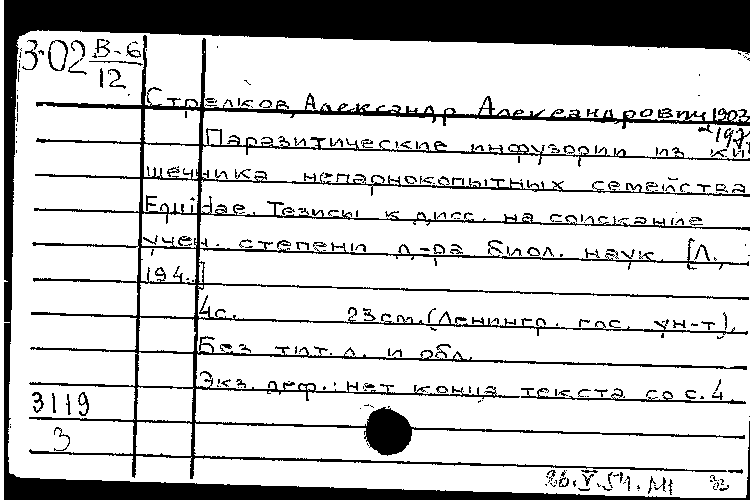 3·02 В-6
12
Стрелков, Александр Александрович 1903
Паразитические инфузории из ки
шечника непарнокопытных семейства
Equidae. Тезисы к дисс. на соискание
учен. степени д-ра биол. наук. [Л.,
194..]
4с. 23см. (Ленингр. гос. ун-т).
Без тит. л. и обл.
Экз. деф.: нет конца текста со с. 4.
3119
3
26.V.54.